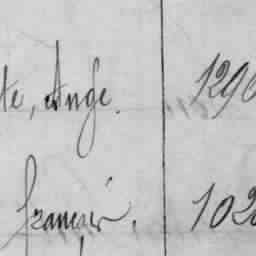 te, Ange. 1290
français, 102